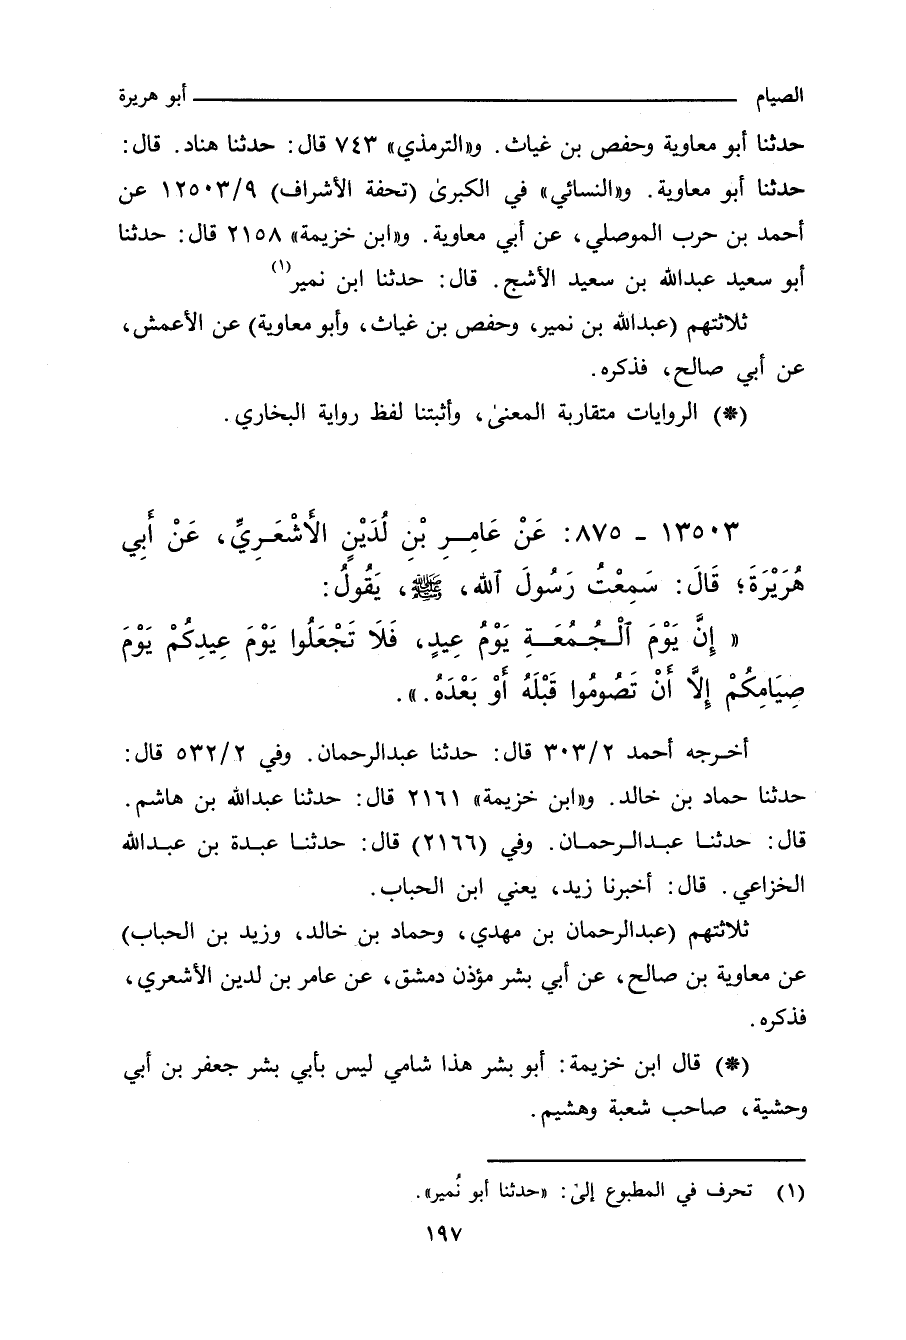 الصيام ــــــــــــــــــــ أبو هريرة
حدثنا أبو معاوية وحفص بن غياث. و«الترمذي» ٧٤٣ قال: حدثنا هناد. قال:
حدثنا أبو معاوية. و«النسائي» في الكبرىٰ (تحفة الأشراف) ١٢٥٠٣/٩ عن
أحمد بن حرب الموصلي، عن أبي معاوية. و«ابن خزيمة» ٢١٥٨ قال: حدثنا
أبو سعيد عبدالله بن سعيد الأشج. قال: حدثنا ابن نمير(١)
ثلاثتهم (عبدالله بن نمير، وحفص بن غياث، وأبو معاوية) عن الأعمش،
عن أبي صالح، فذكره.
(*) الروايات متقاربة المعنىٰ، وأثبتنا لفظ رواية البخاري.
١٣٥٠٣ ـ ٨٧٥: عَنْ عَامِرِ بْنِ لُدَيْنٍ الأَشْعَرِيِّ، عَنْ أَبِي
هُرَيْرَةَ؛ قَالَ: سَمِعْتُ رَسُولَ ٱلله، ﷺ، يَقُولُ:
« إِنَّ يَوْمَ ٱلْجُمُعَةِ يَوْمُ عِيدٍ، فَلَا تَجْعَلُوا يَوْمَ عِيدِكُمْ يَوْمَ
صِيَامِكُمْ إِلَّا أَنْ تَصُومُوا قَبْلَهُ أَوْ بَعْدَهُ.».
أخرجه أحمد ٣٠٣/٢ قال: حدثنا عبدالرحمان. وفي ٥٣٢/٢ قال:
حدثنا حماد بن خالد. و«ابن خزيمة» ٢١٦١ قال: حدثنا عبدالله بن هاشم.
قال: حدثنا عبدالرحمان. وفي (٢١٦٦) قال: حدثنا عبدة بن عبدالله
الخزاعي. قال: أخبرنا زيد، يعني ابن الحباب.
ثلاثتهم (عبدالرحمان بن مهدي، وحماد بن خالد، وزيد بن الحباب)
عن معاوية بن صالح، عن أبي بشر مؤذن دمشق، عن عامر بن لدين الأشعري،
فذكره.
(*) قال ابن خزيمة: أبو بشر هذا شامي ليس بأبي بشر جعفر بن أبي
وحشية، صاحب شعبة وهشيم.
(١) تحرف في المطبوع إلىٰ: «حدثنا أبو نُمير».
١٩٧